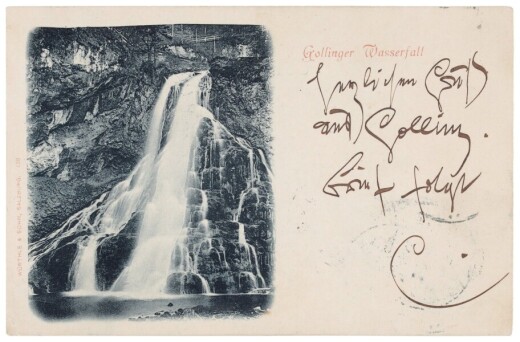 Gollinger Wasserfall
herzlichen Gruß
aus Golling.
Brief folgt
C.
WÜRTHLE & SOHN, SALZBURG.